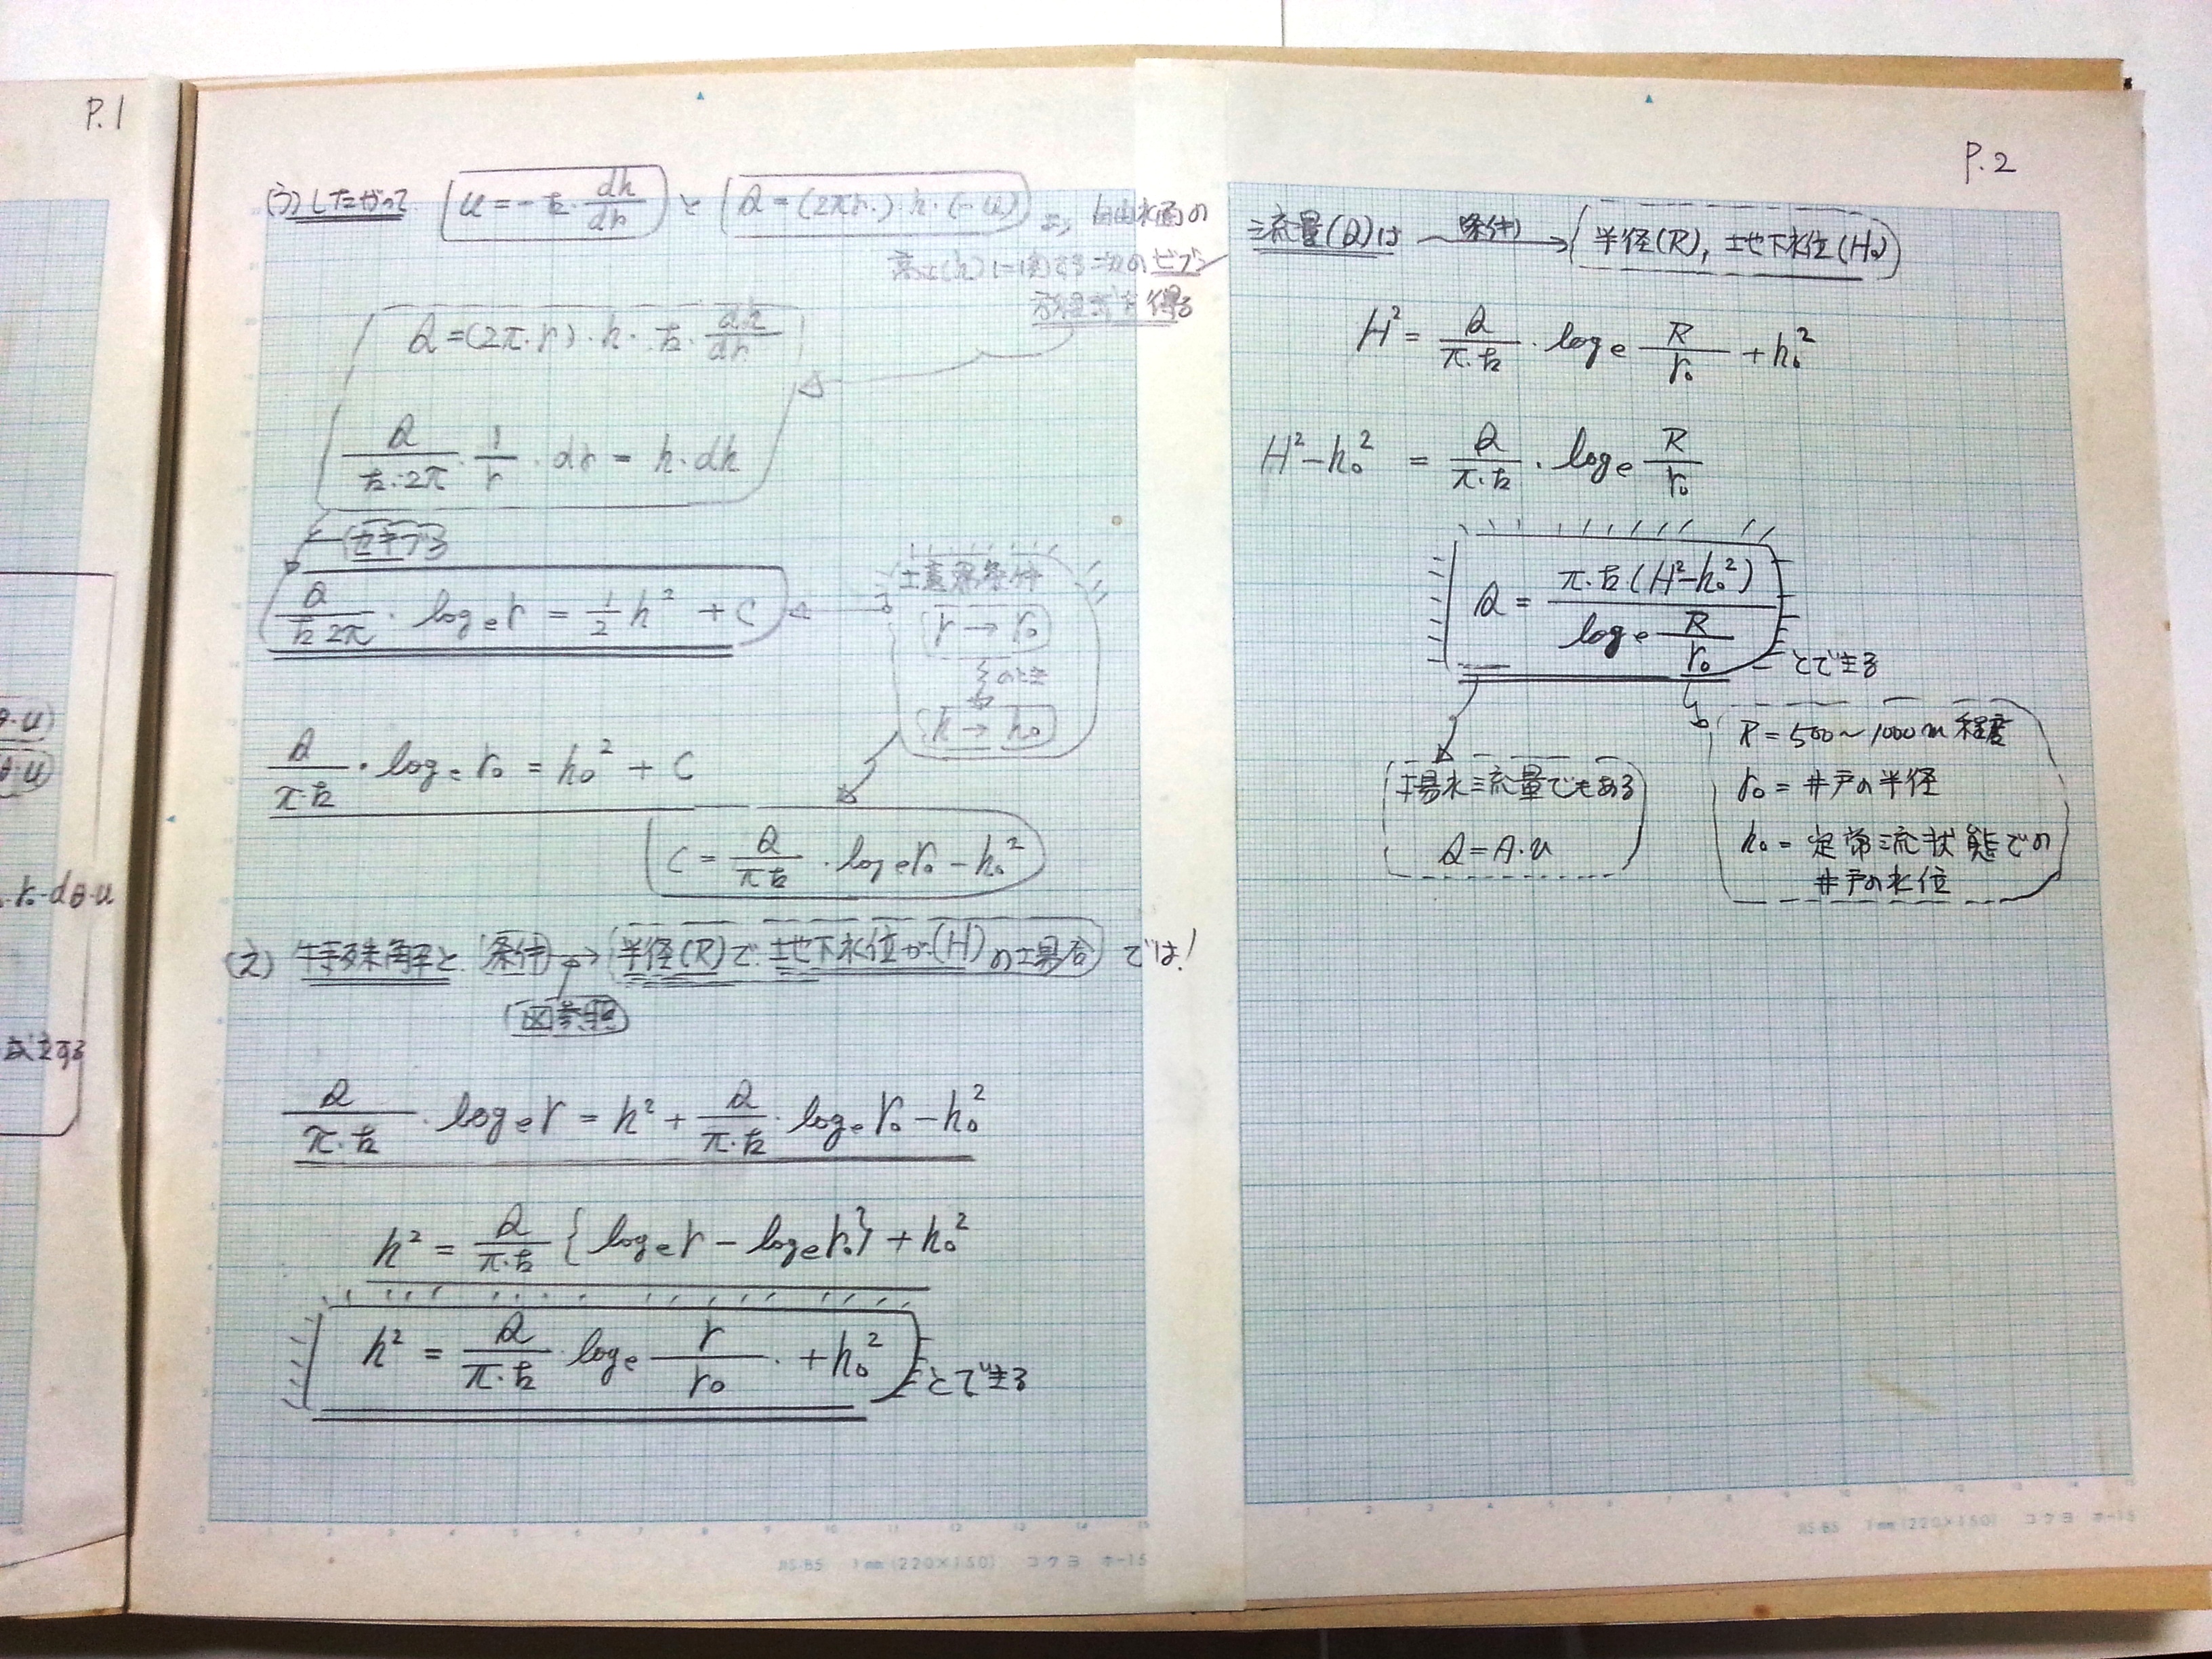 P.1
(う)したがって u=-k・dh/dr と Q=(2πr.)・h・(-u) より 自由水面の
高さ(h)に関する次のビブン
方程式を得る
Q=(2π・r)・h・k・dh/dr
Q/k・2π・1/r・dr=h・dh
セキブる
Q/k2π・loger=1/2h²+C
境界条件
r→r₀
そのとき
h→h₀
Q/π・k・loger₀=h₀²+C
C=Q/πk・loger₀-h₀²
(え)特殊解と条件→半径(R)で地下水位が(H)の場合では!
図参照
Q/π・k・loger=h²+Q/π・k・loger₀-h₀²
h²=Q/π・k{loger-loger₀}+h₀²
h²=Q/π・k・loge r/r₀・+h₀²
とできる
JIS-B5 1mm(220×150) コクヨ ホ-15
θ・u)
θ・u)
r・dθ・u
成立する
P.2
流量(Q)は 条件→半径(R),地下水位(H)
H²=Q/π・k・loge R/r₀+h₀²
H²-h₀²=Q/π・k・loge R/r₀
Q=π・k(H²-h₀²)/loge R/r₀
とできる
揚水流量でもある
Q=A・u
R=500~1000m程度
r₀=井戸の半径
h₀=定常流状態での
井戸の水位
JIS-B5 1mm(220×150) コクヨ ホ-15